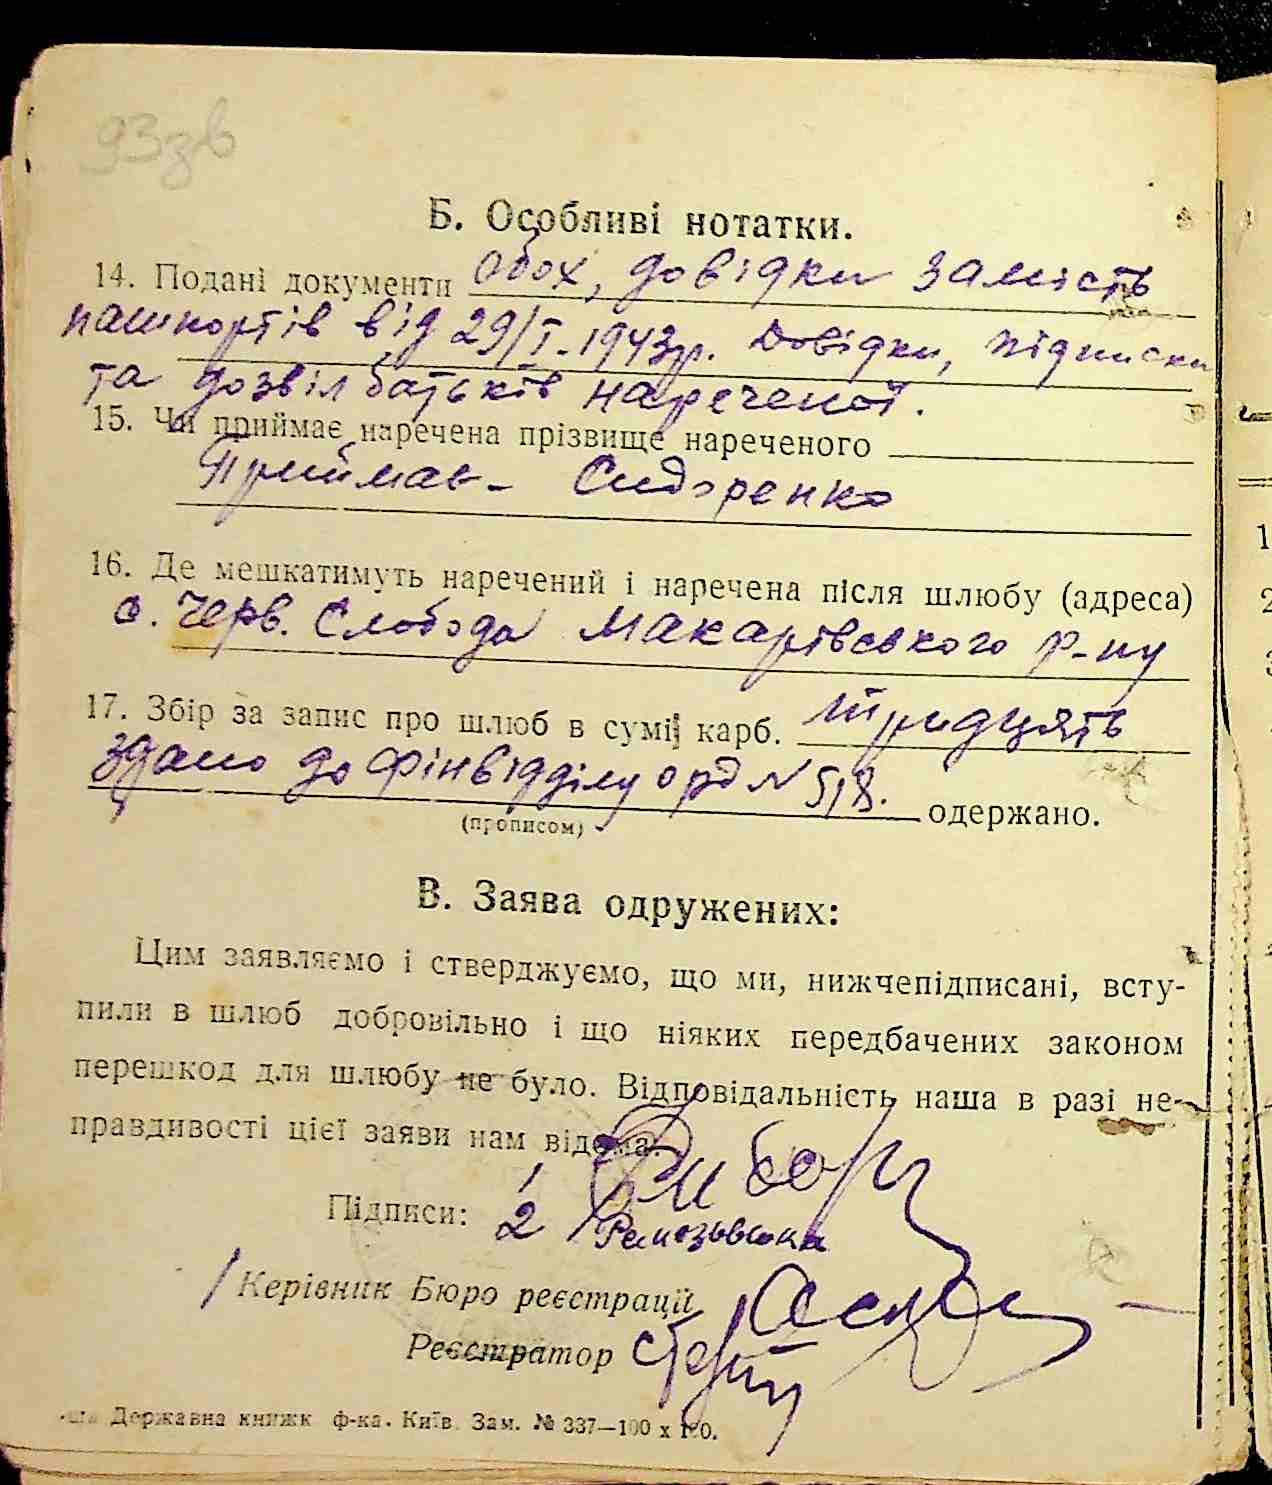 93зв
Б. Особливі нотатки.
14. Подані документи обох, довідки замість
пашпортів від 29/I-1943р. Довідки, підписки
та дозвіл батьків нареченої.
15. Чи приймає наречена прізвище нареченого
Приймає - Сидоренко
16. Де мешкатимуть наречений і наречена після шлюбу (адреса)
с. Черв. Слобода Макарівського р-ну
17. Збір за запис про шлюб в сумі карб. тридцять
здано до фінвідділу орд № 518. одержано.
(прописом)
В. Заява одружених:
Цим заявляємо і стверджуємо, що ми, нижчепідписані, всту-
пили в шлюб добровільно і що ніяких передбачених законом
перешкод для шлюбу не було. Відповідальність наша в разі не-
правдивості цієї заяви нам відома.
Підписи: 1
2
Керівник Бюро реєстрації
Реєстратор
Державна книжк ф-ка. Київ. Зам. № 337—100 х 100.